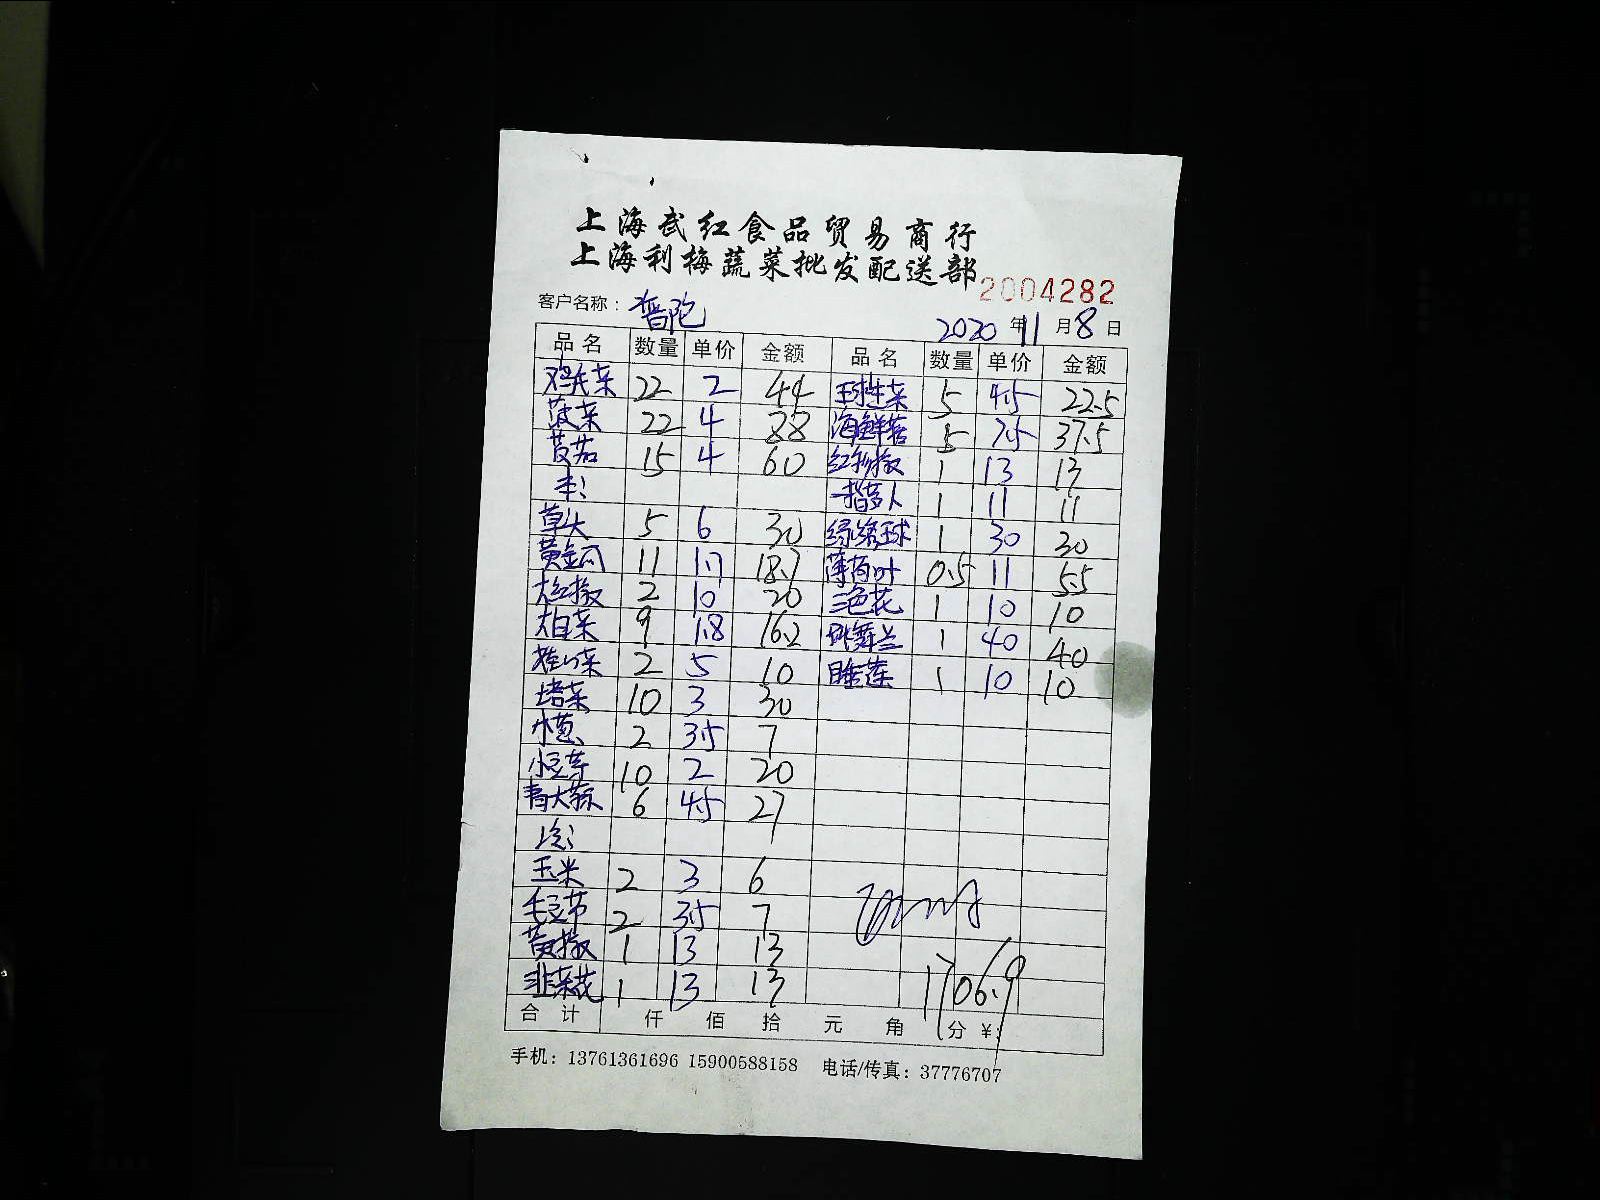 上海武红食品贸易商行
上海利梅蔬菜批发配送部
2004282
客户名称：普陀
2020年11月8日
品名 数量 单价 金额 品名 数量 单价 金额
鸡毛菜 22 2 44 球生菜 5 4.5 22.5
菠菜 22 4 88 海鲜菇 5 7.5 37.5
茄 15 4 60 红椒 1 13 13
1 11 11
草头 5 6 30 绿绣球 1 30 30
黄金瓜 11 1.7 18.7 薄荷叶 0.5 11 5.5
大红椒 2 10 20 三色花 1 10 10
大白菜 9 1.8 16.2 跳舞兰 1 40 40
菜 2 5 10 睡莲 1 10 10
塔菜 10 3 30
小葱 2 3.5 7
小豆芽 10 2 20
青大蒜 6 4.5 27
玉米 2 3 6
毛豆节 2 3.5 7
黄椒 1 13 13
韭菜花 1 13 13
1706.9
合计 仟 佰 拾 元 角 分 ¥:
手机：13761361696 15900588158 电话/传真：37776707